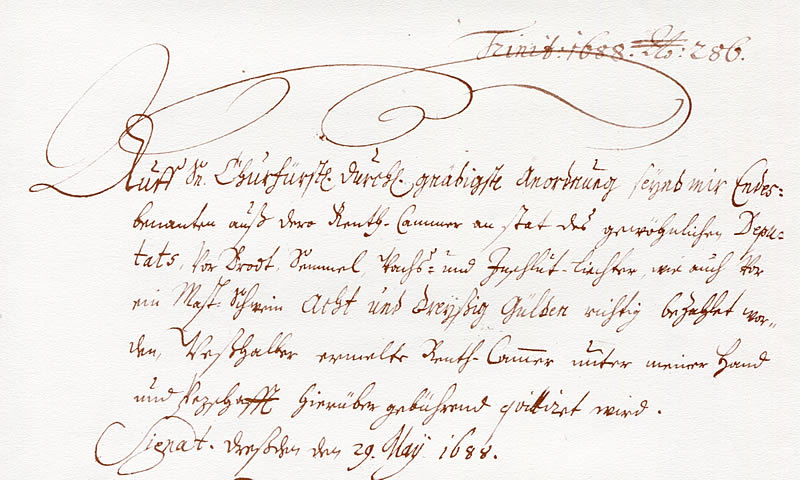 Trinit: 1688. No: 286.
Auff Sr. Churfürstl. Durchl. gnädigste Anordnung seynd mir Endes-
benanten auß dero Renth-Cammer an stat des gewöhnlichen Depu-
tats, vor Brodt, Semmel, Wachs- und Inschlut-Liechter, wie auch vor
ein Mast-Schwein Acht und dreyßig Gülden richtig bezahlet wor-
den, Weßhalber ermelte Renth-Cammer unter meiner Hand
und hierüber gebührend quittiret wird.
Signat. Dreßden den 29. May 1688.